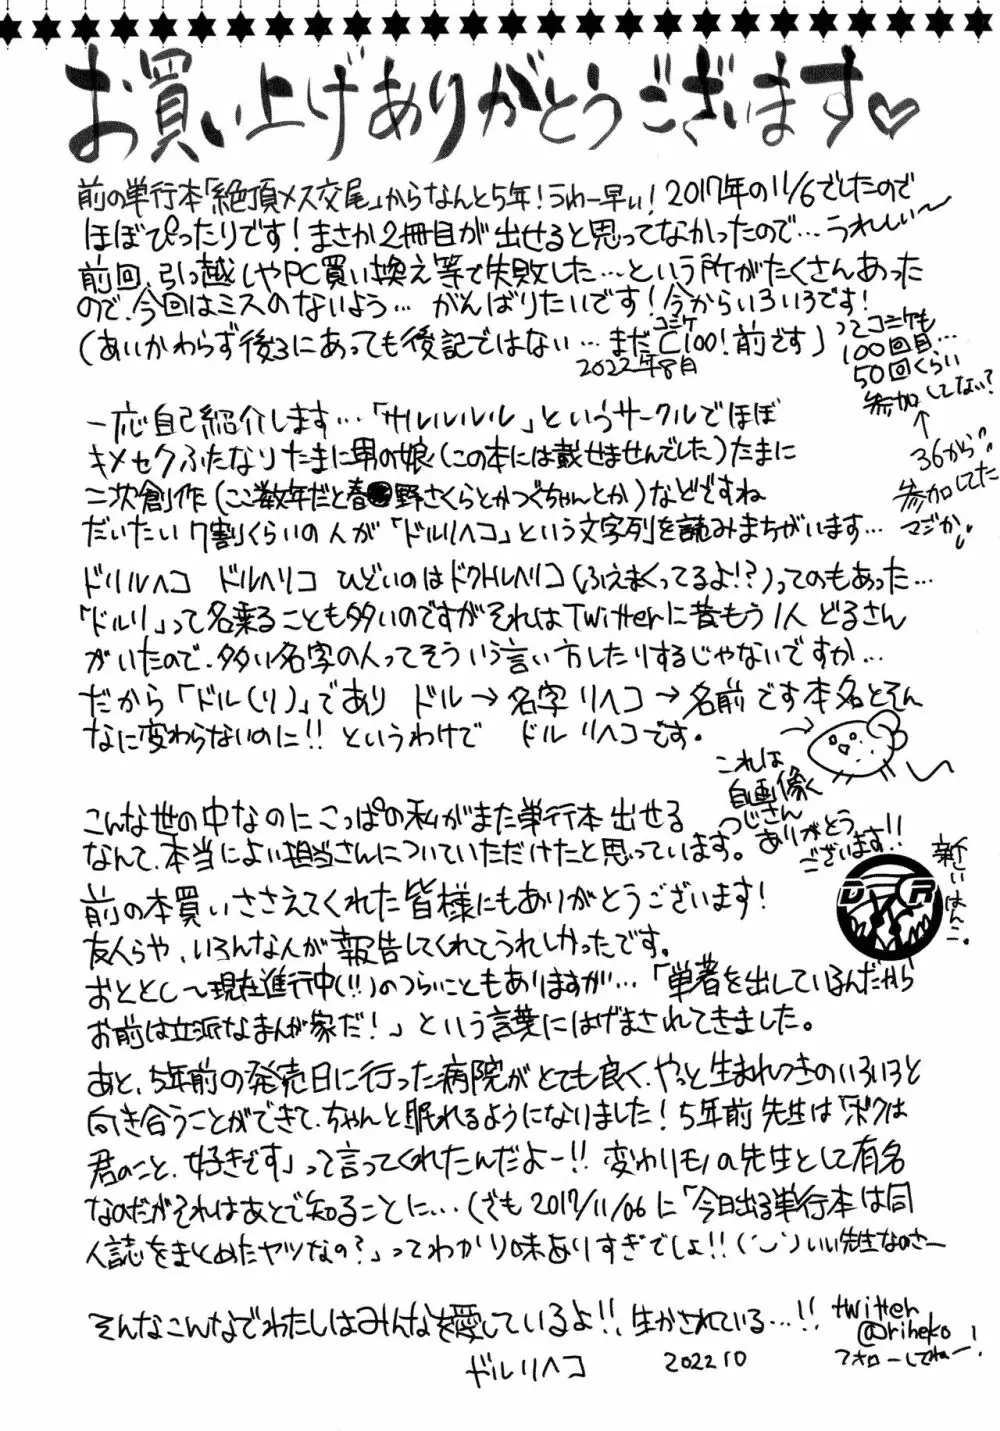 お買い上げありがとうございます♡
前の単行本「絶頂メス交尾」からなんと5年！うわー早い！2017年の11/6でしたので
ほぼぴったりです！まさか2冊目が出せると思ってなかったので…うれしい～
前回、引っ越しやPC買い換え等で失敗した…という所がたくさんあった
ので、今回はミスのないよう…がんばりたいです！今からいろいろです！
(あいかわらず後ろにあっても後記ではない…まだC100！前です)
コミケ
2022年8月
ってコミケも
100回目…
50回くらい
参加してない？
↑
36から
参加してた
マジか
一応自己紹介します…「サルルルルル」というサークルでほぼ
キメセクふたなりたまに男の娘(この本には載せませんでした)たまに
二次創作(ここ数年だと春●野さくらとかつぐちゃんとか)などですね
だいたい7割くらいの人が「ドルリヘコ」という文字列を読みまちがいます…
ドリルヘコ ドルヘリコ ひどいのはドクトルヘリコ(ふえまくってるよ!?)ってのもあった…
「ドルリ」って名乗ることも多いのですがそれはTwitterに昔もう1人どるさん
がいたので、多い名字の人ってそういう言い方したりするじゃないですか…
だから「ドル(リ)」であり ドル→名字 リヘコ→名前です本名とそん
なに変わらないのに!! というわけで ドル リヘコです。
これは
自画像く
つじさん
ありがとう
ございます!!
こんな世の中なのにこっぱの私がまた単行本出せる
なんて、本当によい担当さんについていただけたと思っています。
新しいはんこ。
D R
前の本買いささえてくれた皆様にもありがとうございます！
友人らや、いろんな人が報告してくれてうれしかったです。
おととし～現在進行中(!!)のつらいこともありますが…「単著を出しているんだから
お前は立派なまんが家だ！」という言葉にはげまされてきました。
あと、5年前の発売日に行った病院がとても良く、やっと生まれつきのいろいろと
向き合うことができて、ちゃんと眠れるようになりました！5年前先生は「ボクは
君のこと、好きです」って言ってくれたんだよー!! 変わりモノの先生として有名
なのだがそれはあとで知ることに…(でも2017/11/06に「今日出る単行本は同
人誌をまとめたヤツなの？」ってわかり味ありすぎでしょ!!(･‿･)いい先生なのさー
そんなこんなでわたしはみんなを愛しているよ!!、生かされている…!!
ドルリヘコ
2022 10
twitter
@riheko
フォローしてねー！